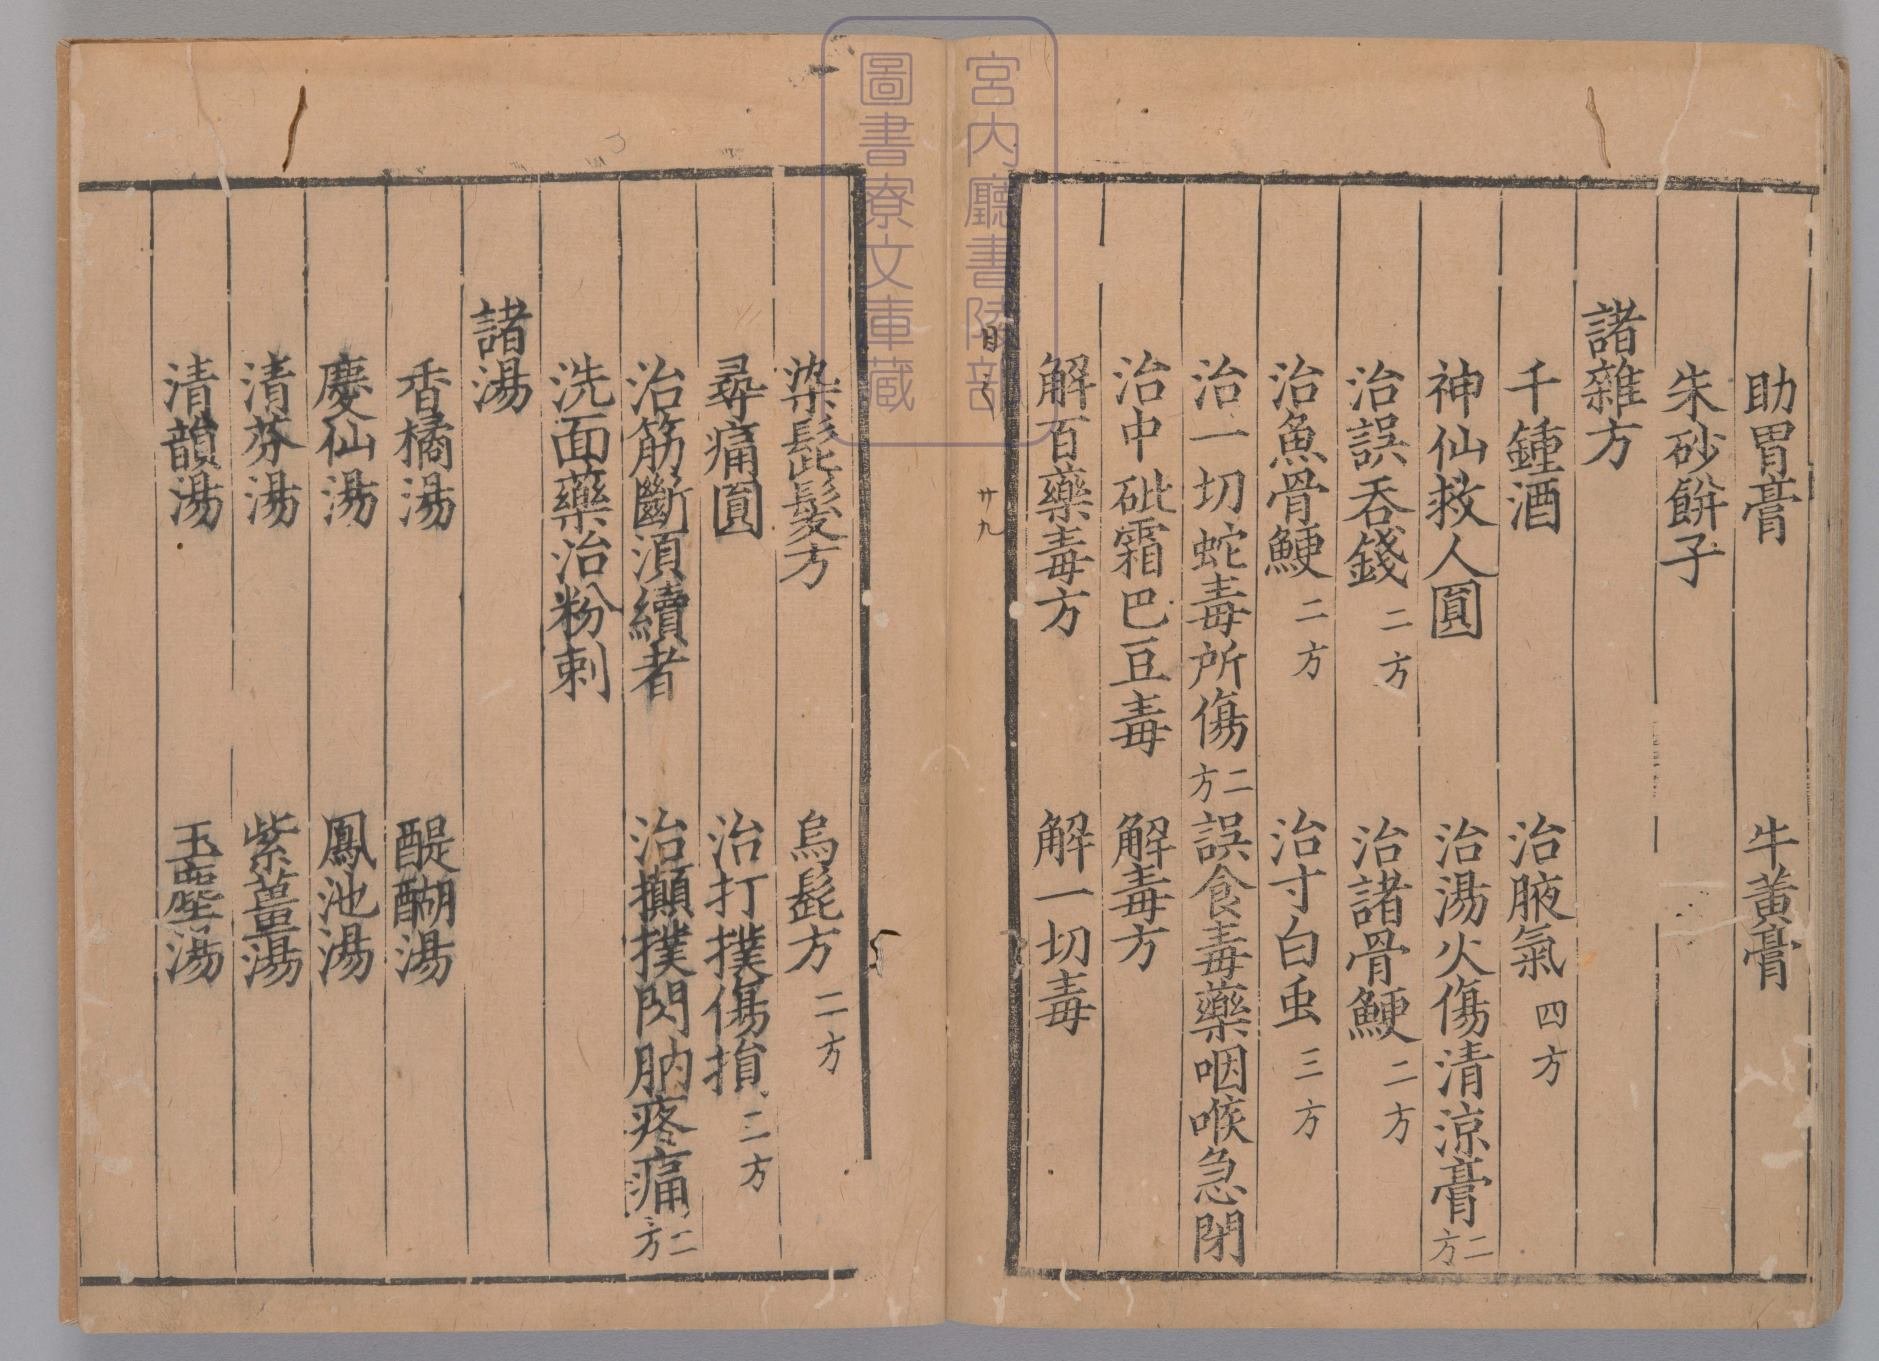 助胃膏 牛黃膏
朱砂餅子
諸雜方
千鍾酒 治腋氣四方
神仙救人圓 治湯火傷清涼膏二方
治誤吞錢二方 治諸骨鯁二方
治魚骨鯁二方 治寸白虫三方
治一切蛇毒所傷二方 誤食毒藥咽喉急閉
治中砒霜巴豆毒 解毒方
解百藥毒方 解一切毒
目 廿九
宮内廳書陵部
圖書寮文庫蔵
染髭髮方 烏髭方二方
尋痛圓 治打撲傷損二方
治筋斷須續者 治攧撲閃肭疼痛二方
洗面藥治粉刺
諸湯
香橘湯 醍醐湯
慶仙湯 鳳池湯
清芬湯 紫薑湯
清韻湯 玉塵湯